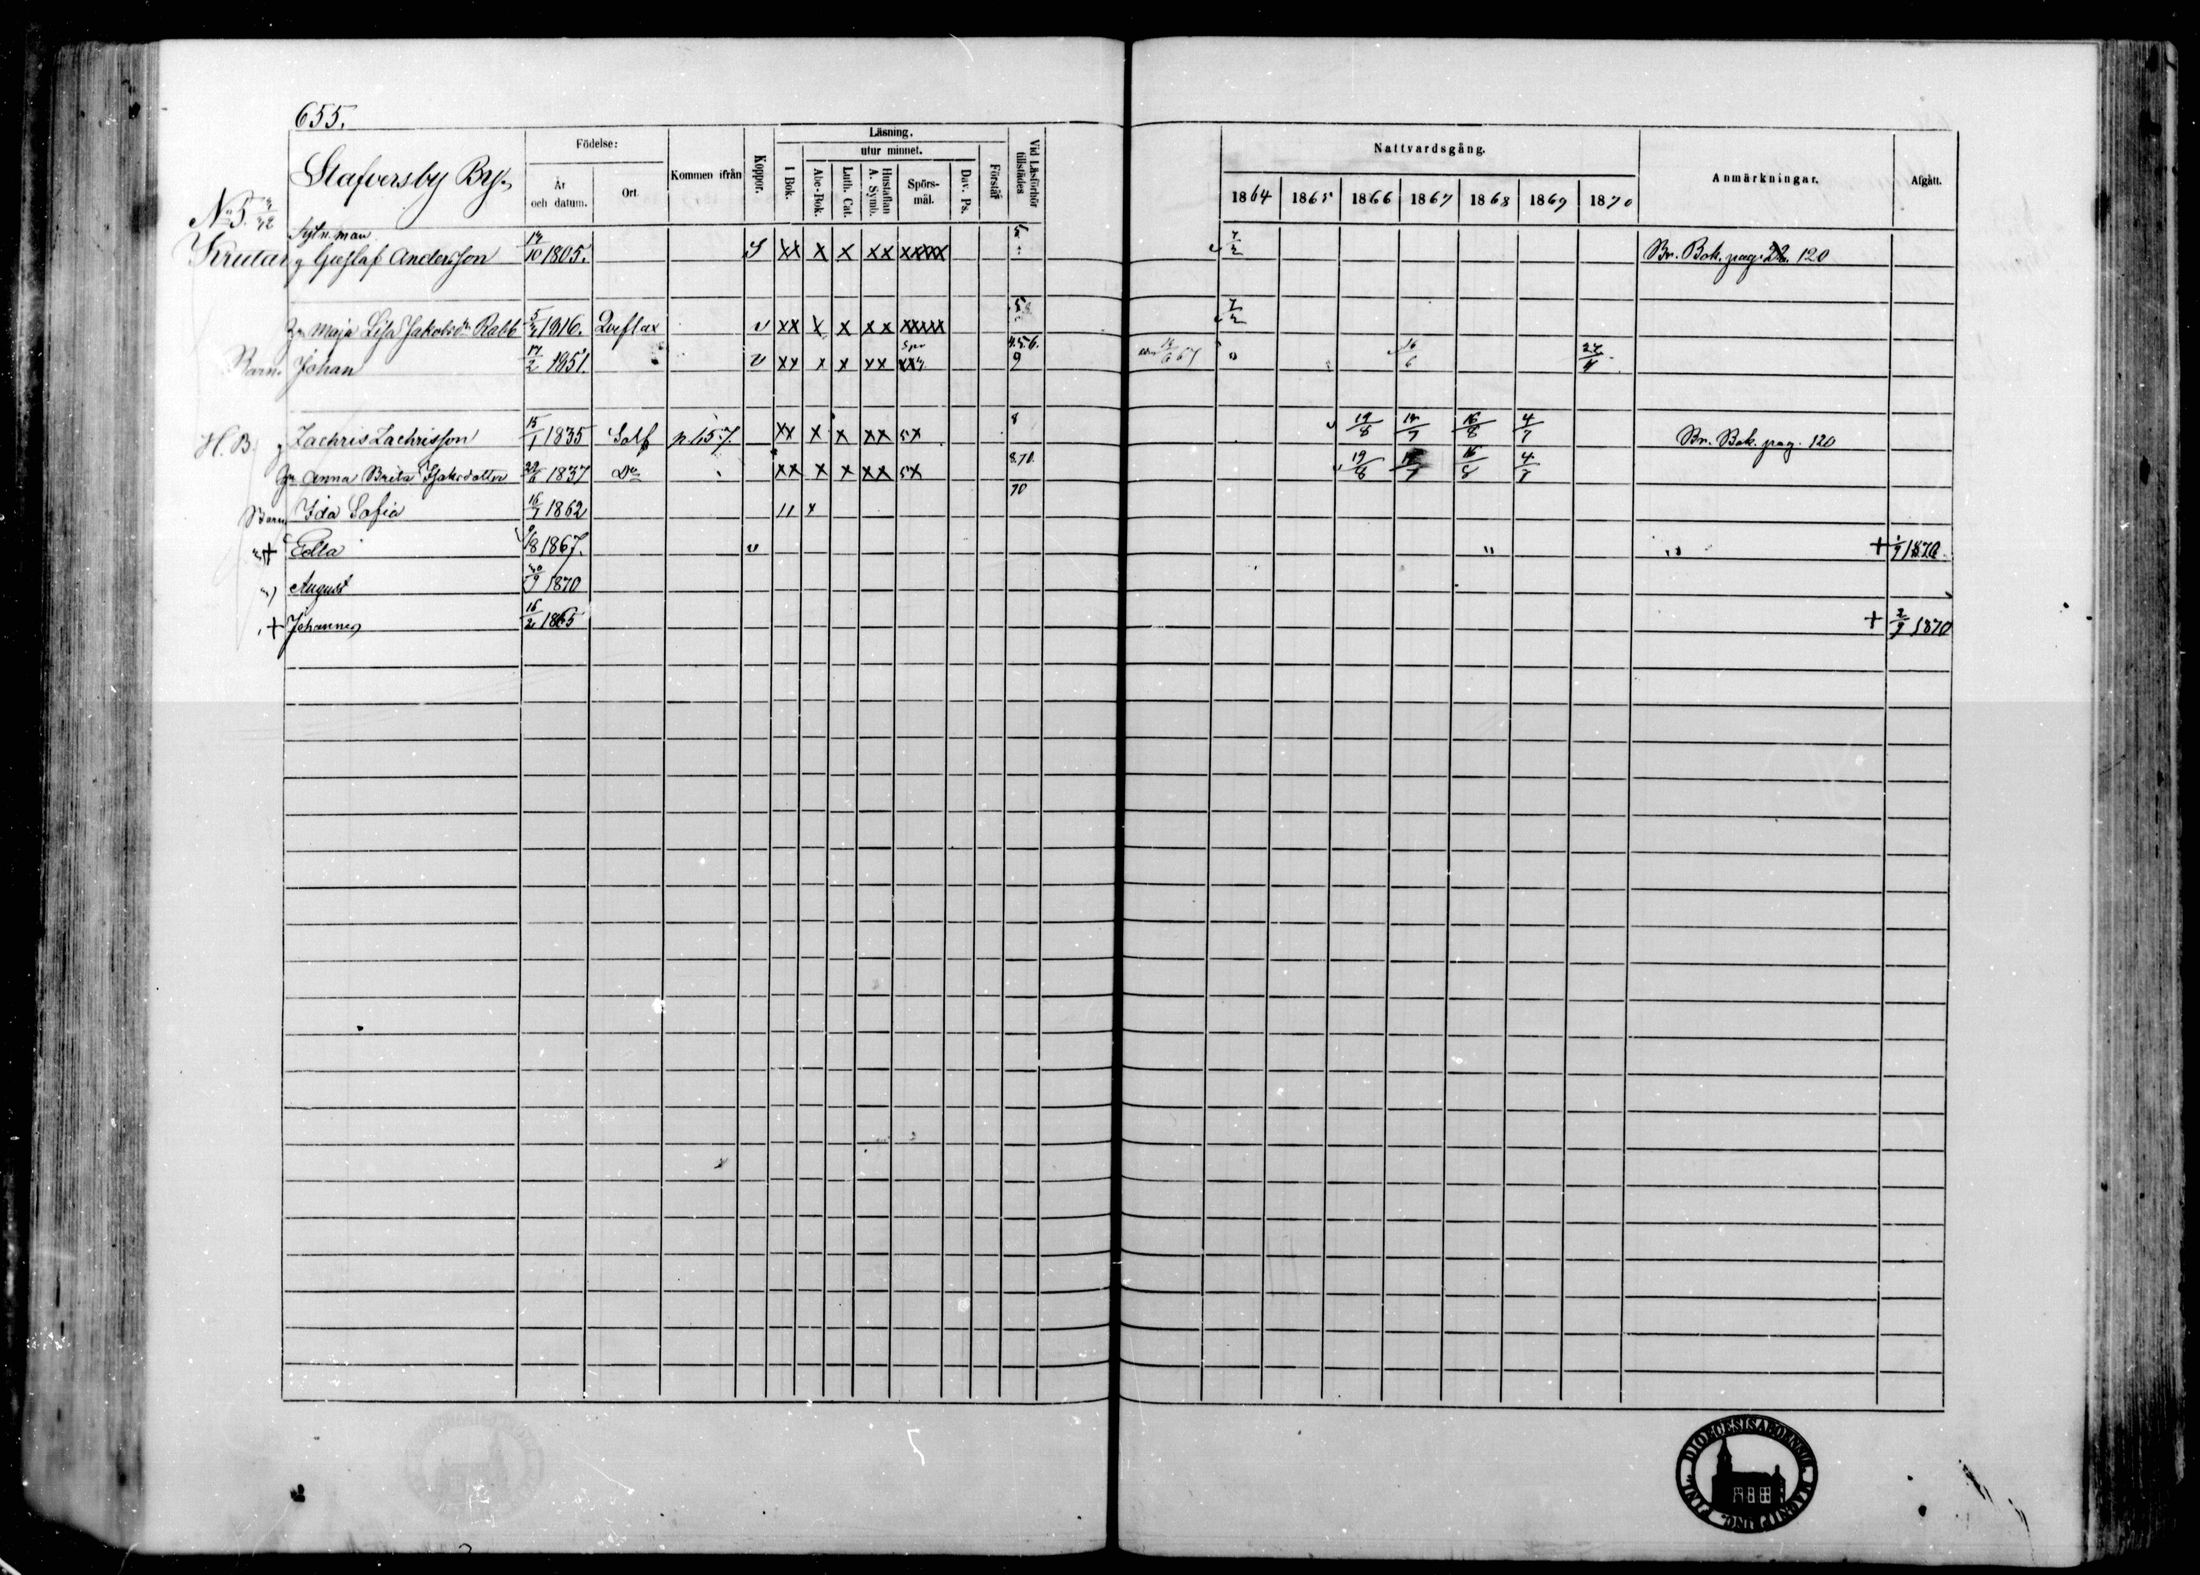 655.
Stafversby By.
Födelse:
År och datum.
Ort.
Kommen ifrån
Koppor.
Läsning.
utur minnet.
I Bok.
Abc-Bok.
Luth. Cat.
Hustaflan A. Symb.
Spörs-mål.
Dav. Ps.
Förstår
Vid Läsförhör tillstädes
Nattvardsgång.
1864 1865 1866 1867 1868 1869 1870
Anmärkningar.
Afgått.
No 5.
Krutar Gustaf Andersson 10 1805. xx x x xx xxxxx 7/2 Br. Bok. pag. 120
Maja Lisa Jakobsdr Rabb Qveflax v xx x x xx xxxxx 7/2
Barn. Johan 17/2 1851. v xx x x xx 9 16/6
4.5.6.
H. B. Zachris Zachrisson 15/1 1835 Solf p. 157. xx x x xx 5x 8 19/8 19/7 16/8 4/7 Br. Bok. pag. 120
Anna Brita Isaksdotter 1837 Do xx x x xx 5x 8.70. 19/8 16/8 4/7
Barn Ida Sofia 16/7 1862 70
+ Edla 9/8 1867. v " + 1870.
" August 9 1870
+ Johannes 16/2 1865 + 2/9 1870